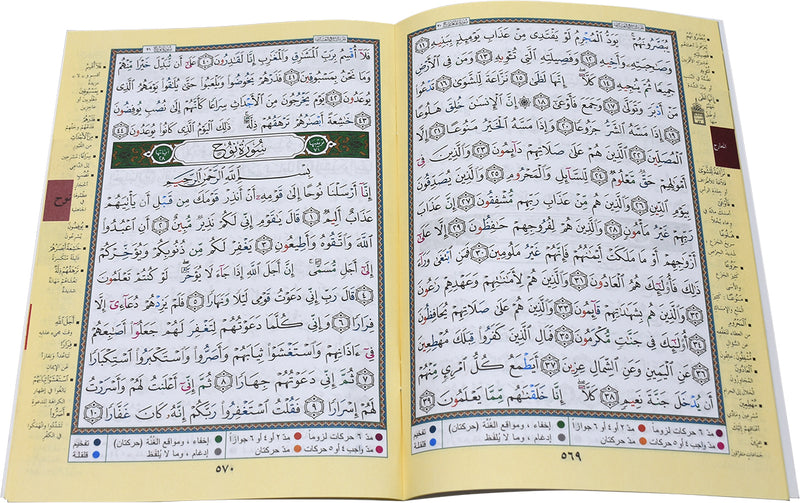 يُبَصَّرُونَهُمْ يَوَدُّ ٱلْمُجْرِمُ لَوْ يَفْتَدِى مِنْ عَذَابِ يَوْمِئِذٍۭ بِبَنِيهِ ١١
وَصَٰحِبَتِهِۦ وَأَخِيهِ ١٢ وَفَصِيلَتِهِ ٱلَّتِى تُـْٔوِيهِ ١٣ وَمَن فِى ٱلْأَرْضِ
جَمِيعًا ثُمَّ يُنجِيهِ ١٤ كَلَّآ إِنَّهَا لَظَىٰ ١٥ نَزَّاعَةً لِّلشَّوَىٰ ١٦ تَدْعُوا۟
مَنْ أَدْبَرَ وَتَوَلَّىٰ ١٧ وَجَمَعَ فَأَوْعَىٰٓ ١٨ ۞ إِنَّ ٱلْإِنسَٰنَ خُلِقَ هَلُوعًا
١٩ إِذَا مَسَّهُ ٱلشَّرُّ جَزُوعًا ٢٠ وَإِذَا مَسَّهُ ٱلْخَيْرُ مَنُوعًا ٢١ إِلَّا
ٱلْمُصَلِّينَ ٢٢ ٱلَّذِينَ هُمْ عَلَىٰ صَلَاتِهِمْ دَآئِمُونَ ٢٣ وَٱلَّذِينَ فِىٓ
أَمْوَٰلِهِمْ حَقٌّ مَّعْلُومٌ ٢٤ لِّلسَّآئِلِ وَٱلْمَحْرُومِ ٢٥ وَٱلَّذِينَ يُصَدِّقُونَ
بِيَوْمِ ٱلدِّينِ ٢٦ وَٱلَّذِينَ هُم مِّنْ عَذَابِ رَبِّهِم مُّشْفِقُونَ ٢٧ إِنَّ عَذَابَ
رَبِّهِمْ غَيْرُ مَأْمُونٍ ٢٨ وَٱلَّذِينَ هُمْ لِفُرُوجِهِمْ حَٰفِظُونَ ٢٩ إِلَّا عَلَىٰٓ
أَزْوَٰجِهِمْ أَوْ مَا مَلَكَتْ أَيْمَٰنُهُمْ فَإِنَّهُمْ غَيْرُ مَلُومِينَ ٣٠ فَمَنِ ٱبْتَغَىٰ وَرَآءَ
ذَٰلِكَ فَأُو۟لَٰٓئِكَ هُمُ ٱلْعَادُونَ ٣١ وَٱلَّذِينَ هُمْ لِأَمَٰنَٰتِهِمْ وَعَهْدِهِمْ رَٰعُونَ
٣٢ وَٱلَّذِينَ هُم بِشَهَٰدَٰتِهِمْ قَآئِمُونَ ٣٣ وَٱلَّذِينَ هُمْ عَلَىٰ صَلَاتِهِمْ يُحَافِظُونَ
٣٤ أُو۟لَٰٓئِكَ فِى جَنَّٰتٍ مُّكْرَمُونَ ٣٥ فَمَالِ ٱلَّذِينَ كَفَرُوا۟ قِبَلَكَ مُهْطِعِينَ
٣٦ عَنِ ٱلْيَمِينِ وَعَنِ ٱلشِّمَالِ عِزِينَ ٣٧ أَيَطْمَعُ كُلُّ ٱمْرِئٍ مِّنْهُمْ
أَن يُدْخَلَ جَنَّةَ نَعِيمٍ ٣٨ كَلَّآ إِنَّا خَلَقْنَٰهُم مِّمَّا يَعْلَمُونَ ٣٩
مدّ ٦ حركات لزوماً مدّ ٢ أو ٤ أو ٦ جوازاً إخفاء ، ومواقع الغُنَّة (حركتان) تفخيم
مدّ واجب ٤ أو ٥ حركات مدّ حركتان إدغام ، وما لا يُلفَظ قلقلة
٥٦٩
المعارج
فَلَآ أُقْسِمُ بِرَبِّ ٱلْمَشَٰرِقِ وَٱلْمَغَٰرِبِ إِنَّا لَقَٰدِرُونَ ٤٠ عَلَىٰٓ أَن نُّبَدِّلَ خَيْرًا مِّنْهُمْ
وَمَا نَحْنُ بِمَسْبُوقِينَ ٤١ فَذَرْهُمْ يَخُوضُوا۟ وَيَلْعَبُوا۟ حَتَّىٰ يُلَٰقُوا۟ يَوْمَهُمُ ٱلَّذِى
يُوعَدُونَ ٤٢ يَوْمَ يَخْرُجُونَ مِنَ ٱلْأَجْدَاثِ سِرَاعًا كَأَنَّهُمْ إِلَىٰ نُصُبٍ يُوفِضُونَ
٤٣ خَٰشِعَةً أَبْصَٰرُهُمْ تَرْهَقُهُمْ ذِلَّةٌ ذَٰلِكَ ٱلْيَوْمُ ٱلَّذِى كَانُوا۟ يُوعَدُونَ ٤٤
سُورَةُ نُوحٍ
بِسْمِ ٱللَّهِ ٱلرَّحْمَٰنِ ٱلرَّحِيمِ
إِنَّآ أَرْسَلْنَا نُوحًا إِلَىٰ قَوْمِهِۦٓ أَنْ أَنذِرْ قَوْمَكَ مِن قَبْلِ أَن يَأْتِيَهُمْ
عَذَابٌ أَلِيمٌ ١ قَالَ يَٰقَوْمِ إِنِّى لَكُمْ نَذِيرٌ مُّبِينٌ ٢ أَنِ ٱعْبُدُوا۟
ٱللَّهَ وَٱتَّقُوهُ وَأَطِيعُونِ ٣ يَغْفِرْ لَكُم مِّن ذُنُوبِكُمْ وَيُؤَخِّرْكُمْ
إِلَىٰٓ أَجَلٍ مُّسَمًّى إِنَّ أَجَلَ ٱللَّهِ إِذَا جَآءَ لَا يُؤَخَّرُ لَوْ كُنتُمْ تَعْلَمُونَ
٤ قَالَ رَبِّ إِنِّى دَعَوْتُ قَوْمِى لَيْلًا وَنَهَارًا ٥ فَلَمْ يَزِدْهُمْ دُعَآءِىٓ إِلَّا
فِرَارًا ٦ وَإِنِّى كُلَّمَا دَعَوْتُهُمْ لِتَغْفِرَ لَهُمْ جَعَلُوٓا۟ أَصَٰبِعَهُمْ
فِىٓ ءَاذَانِهِمْ وَٱسْتَغْشَوْا۟ ثِيَابَهُمْ وَأَصَرُّوا۟ وَٱسْتَكْبَرُوا۟ ٱسْتِكْبَارًا
٧ ثُمَّ إِنِّى دَعَوْتُهُمْ جِهَارًا ٨ ثُمَّ إِنِّىٓ أَعْلَنتُ لَهُمْ وَأَسْرَرْتُ
لَهُمْ إِسْرَارًا ٩ فَقُلْتُ ٱسْتَغْفِرُوا۟ رَبَّكُمْ إِنَّهُۥ كَانَ غَفَّارًا ١٠
مدّ ٦ حركات لزوماً مدّ ٢ أو ٤ أو ٦ جوازاً إخفاء ، ومواقع الغُنَّة (حركتان) تفخيم
مدّ واجب ٤ أو ٥ حركات مدّ حركتان إدغام ، وما لا يُلفَظ قلقلة
٥٧٠
نوح